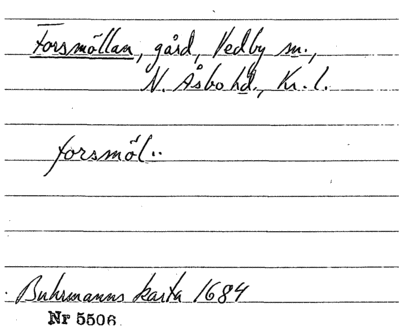 Forsmöllan, gård, Vedby sn.,
N. Åsbo hd., Kr. l.
forsmöl..
Buhrmanns karta 1684
Nr 5506.